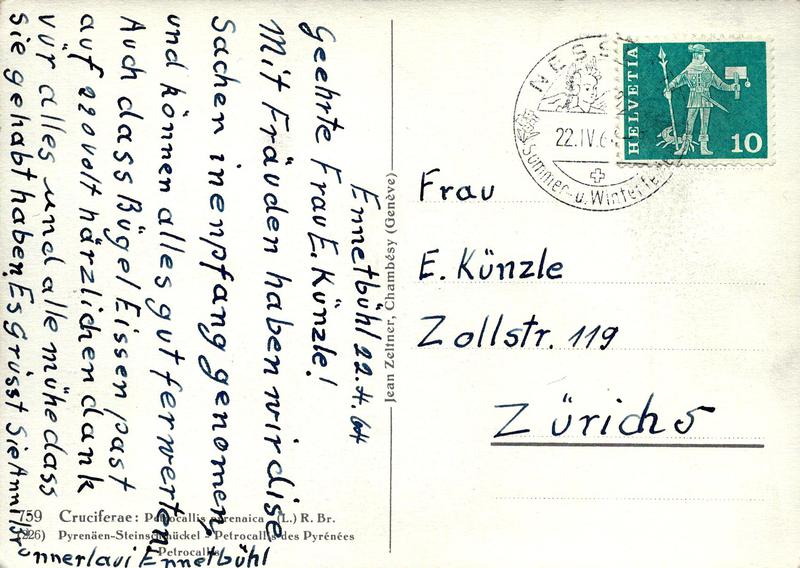 Ennetbühl 22.4.64
Geehrte Frau E. Künzle!
Mit Fräuden haben wir dise
Sachen in enpfang genomen
und können alles gut ferwerten
Auch dass Bügel Eissen past
auf 220 volt härzlichen dank
vür alles und alle mühe dass
Sie gehabt haben Es Grüsst Sie Anni
nnerlaui Ennetbühl
759 Cruciferae: Petrocallis pyrenaica (L.) R. Br.
(226) Pyrenäen-Steinschmückel - Petrocallis des Pyrénées
Petrocallis
Jean Zeltner, Chambésy (Genève)
NESS
22.IV.6
Sommer- u. Winter
HELVETIA
10
Frau
E. Künzle
Zollstr. 119
Zürich 5